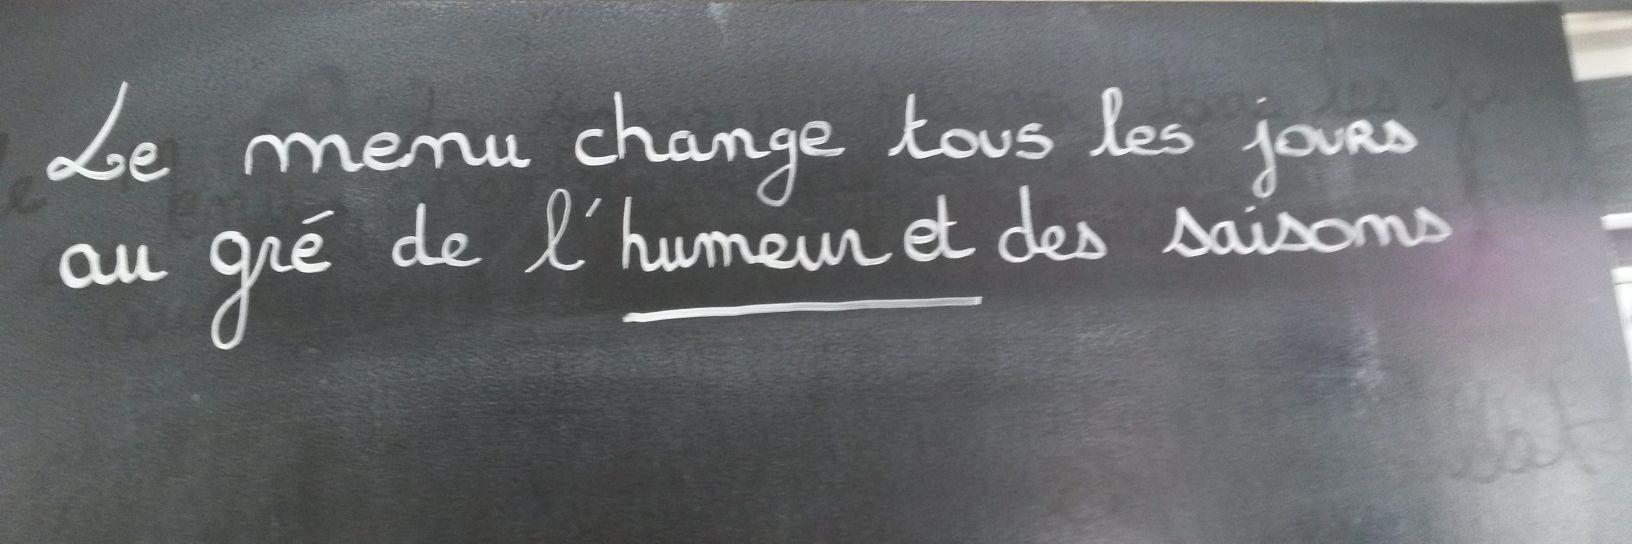 Le menu change tous les jours
au gré de l'humeur et des saisons